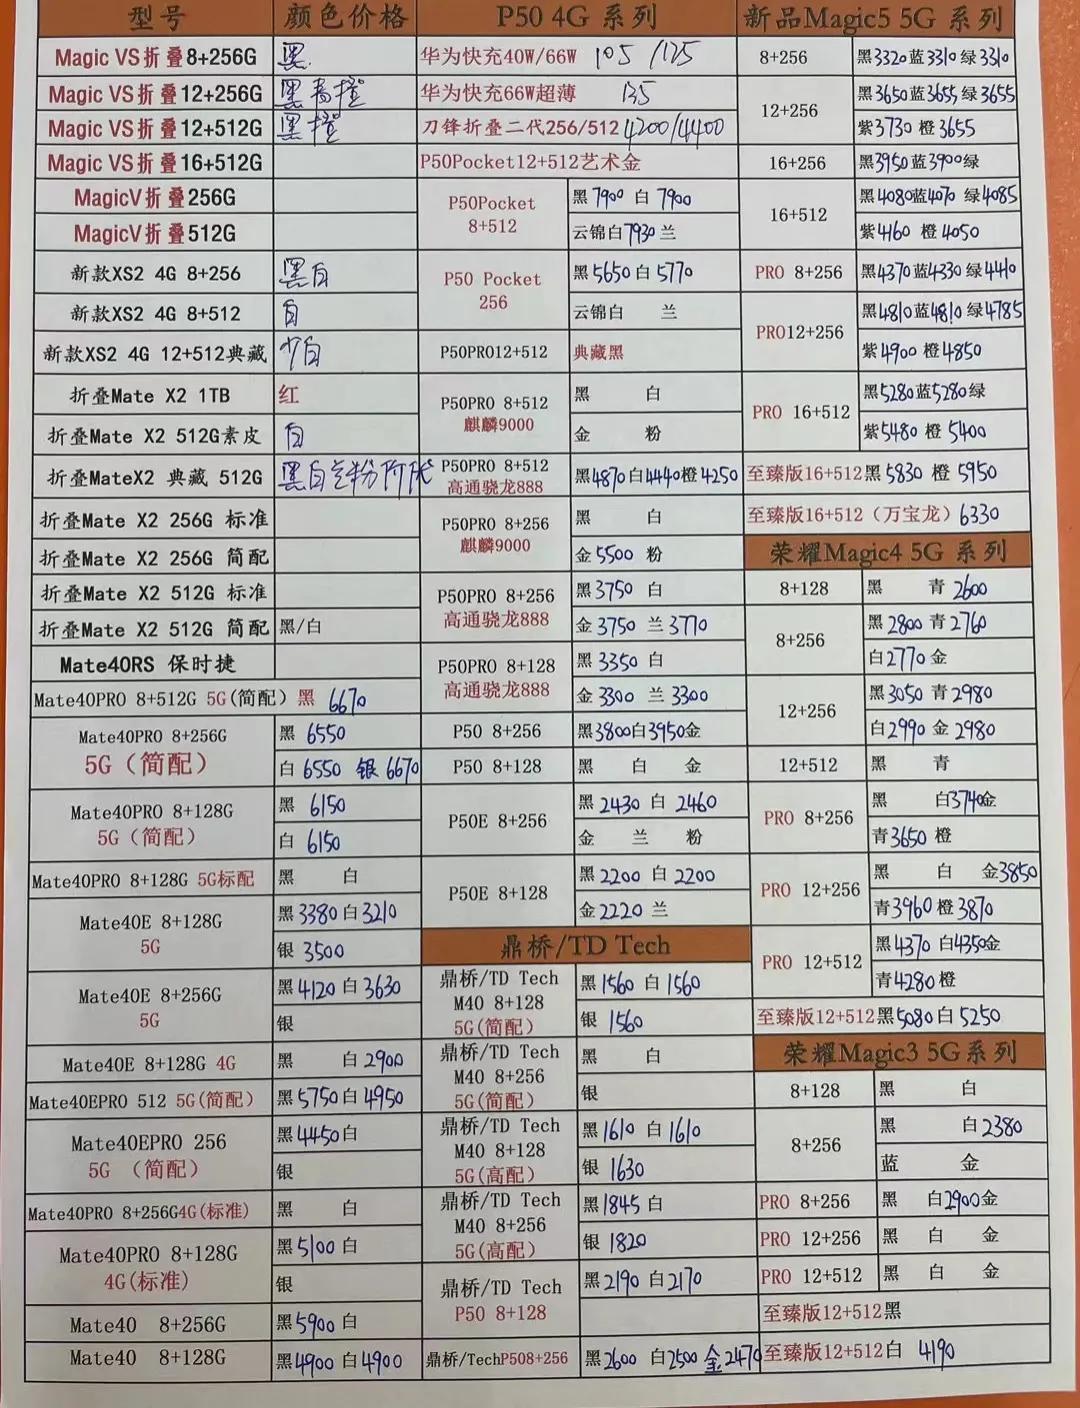 型号 颜色价格
Magic VS折叠8+256G 黑
Magic VS折叠12+256G 黑 青 橙
Magic VS折叠12+512G 黑 橙
Magic VS折叠16+512G
MagicV折叠256G
MagicV折叠512G
新款XS2 4G 8+256 黑白
新款XS2 4G 8+512 白
新款XS2 4G 12+512典藏 白
折叠Mate X2 1TB 红
折叠Mate X2 512G素皮 白
折叠MateX2 典藏 512G 黑白 粉
折叠Mate X2 256G 标准
折叠Mate X2 256G 简配
折叠Mate X2 512G 标准
折叠Mate X2 512G 简配 黑/白
Mate40RS 保时捷
Mate40PRO 8+512G 5G(简配) 黑 6670
Mate40PRO 8+256G 黑 6550
5G(简配) 白 6550 银 6670
Mate40PRO 8+128G 黑 6150
5G(简配) 白 6150
Mate40PRO 8+128G 5G标配 黑 白
Mate40E 8+128G 黑3380白3210
5G 银 3500
Mate40E 8+256G 黑4120白3630
5G 银
Mate40E 8+128G 4G 黑 白2900
Mate40EPRO 512 5G(简配) 黑5750白4950
Mate40EPRO 256 黑4450白
5G (简配) 银
Mate40PRO 8+256G4G(标准) 黑 白
Mate40PRO 8+128G 黑5100白
4G(标准) 银
Mate40 8+256G 黑5900白
Mate40 8+128G 黑4900白4900
P50 4G 系列
华为快充40W/66W 105 /125
华为快充66W超薄 135
刀锋折叠二代256/512 4200/4400
P50Pocket12+512艺术金
P50Pocket 黑7900 白 7900
8+512 云锦白7930兰
P50 Pocket 黑5650白5770
256 云锦白 兰
P50PRO12+512 典藏黑
P50PRO 8+512 黑 白
麒麟9000 金 粉
P50PRO 8+512
高通骁龙888 黑4870白4440橙4250
P50PRO 8+256 黑 白
麒麟9000 金5500粉
P50PRO 8+256 黑3750 白
高通骁龙888 金3750 兰3770
P50PRO 8+128 黑3350白
高通骁龙888 金3300 兰3300
P50 8+256 黑3800白3950金
P50 8+128 黑 白 金
P50E 8+256 黑2430 白 2460
金 兰 粉
P50E 8+128 黑2200 白 2200
金2220 兰
鼎桥/TD Tech
鼎桥/TD Tech 黑1560 白1560
M40 8+128
5G(简配) 银 1560
鼎桥/TD Tech 黑 白
M40 8+256
5G(简配) 银
鼎桥/TD Tech 黑1610 白1610
M40 8+128
5G(高配) 银 1630
鼎桥/TD Tech 黑1845白
M40 8+256
5G(高配) 银 1820
鼎桥/TD Tech 黑2190 白2170
P50 8+128
鼎桥/TechP508+256 黑2600 白2500 金2470
新品Magic5 5G 系列
8+256 黑3320蓝3310绿3310
12+256 黑3650蓝3655绿3655
紫3730 橙 3655
16+256 黑3950蓝3900绿
16+512 黑4080蓝4070 绿4085
紫4160 橙4050
PRO 8+256 黑4370蓝4330绿4410
PRO12+256 黑4810蓝4810绿4785
紫4900橙4850
PRO 16+512 黑5280蓝5280绿
紫5480 橙 5400
至臻版16+512黑 5830 橙 5950
至臻版16+512(万宝龙)6330
荣耀Magic4 5G 系列
8+128 黑 青 2600
8+256 黑2800青2760
白2770金
12+256 黑3050青2980
白2990金 2980
12+512 黑 青
PRO 8+256 黑 白3740金
青3650 橙
PRO 12+256 黑 白 金3850
青3960橙3870
PRO 12+512 黑4370 白4350金
青4280橙
至臻版12+512黑5080白5250
荣耀Magic3 5G系列
8+128 黑 白
8+256 黑 白2380
蓝 金
PRO 8+256 黑 白2900金
PRO 12+256 黑 白 金
PRO 12+512 黑 白 金
至臻版12+512黑
至臻版12+512白 4190